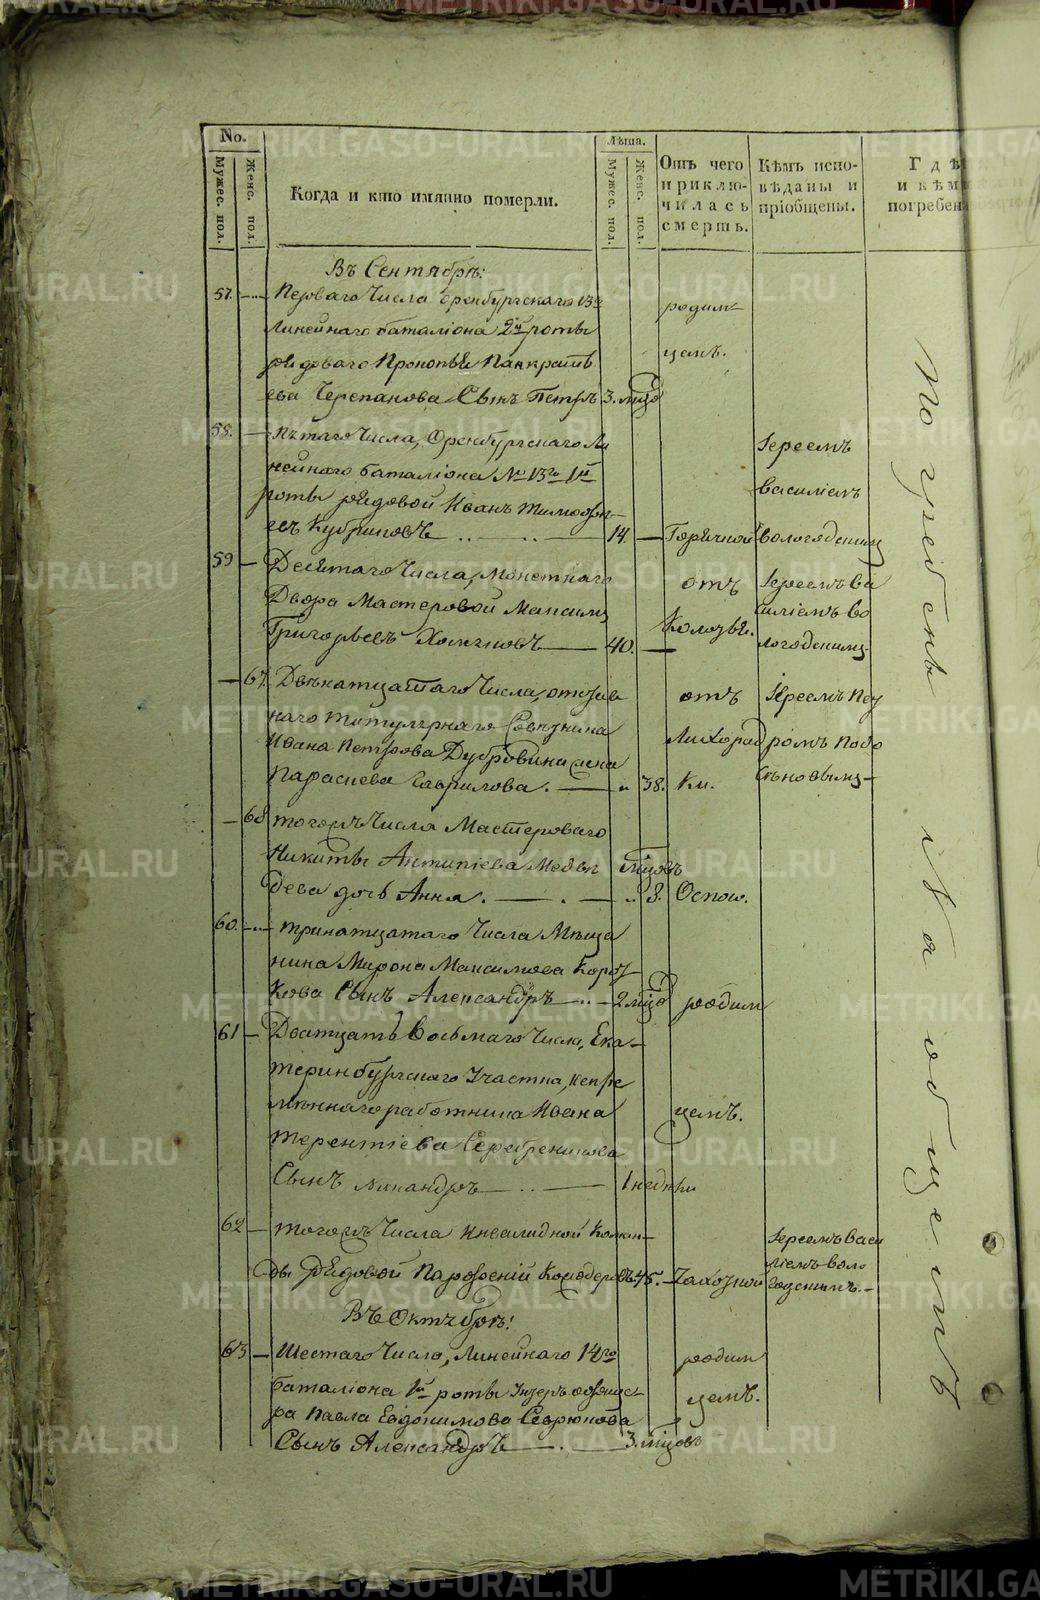 No.
Мужес. пол.
Женс. пол.
Когда и кто имянно померли.
Лѣта.
Мужес. пол.
Женс. пол.
Отъ чего
приклю-
чилась
смерть.
Кѣмъ испо-
вѣданы и
пріобщены.
Гдѣ
и кѣм
погребен
Въ Сентябрѣ:
57. Перваго Числа Оренбургскаго 13го
линейнаго баталіона 2й роты
рядоваго Прокопья Панкрать
ева Черепанова Сынъ Петръ 3. мцо
родим
цемъ.
58. Пятаго Числа, Оренбургскаго Ли
нейнаго баталіона № 13го 1й
роты рядовой Иванъ Тимофѣ
евъ 14. Горячкой
Іереемъ
Василіемъ
Вологодскимъ
59 Десятаго Числа, Монетнаго
Двора Мастеровой Максимъ
Григорьевъ 40.
отъ
Іереемъ Ва
силіемъ Во
логодскимъ
67. Двѣнатцатаго Числа,
наго титулярнаго Совѣтника
Ивана Петрова Дубровина жена
Параскева Гаврилова. 38.
отъ
Лихорад
ки.
Іереемъ Пет
ромъ
68 тогожъ Числа Мастероваго
Никиты Антипіева Медвѣ
дева дочь Анна. мцовъ 8. Оспою.
60. тринатцатаго Числа Мѣща
нина Мирона Максимова Корот
кова Сынъ Александръ 2 мцо
родим
61 Дватцать Восьмаго Числа, Ека-
теринбургскаго Участка, непре
мѣннаго работника Ивана
Терентіева Серебреникова
Сынъ Никандръ 1 недѣли
цемъ.
62 тогожъ Числа Инвалидной Коман-
ды Рядовой 45. Чахоткой
Іереемъ Васи
ліемъ Воло
годскимъ.
Въ Октябрѣ:
63 Шестаго Числа, Линейнаго 14го
баталіона 1й роты Унтеръ офице-
ра Павла Евдокимова Севрюкова
Сынъ Александръ 3. мцовъ
родим
цемъ.
Погребены на общемъ
METRIKI.GASO-URAL.RU